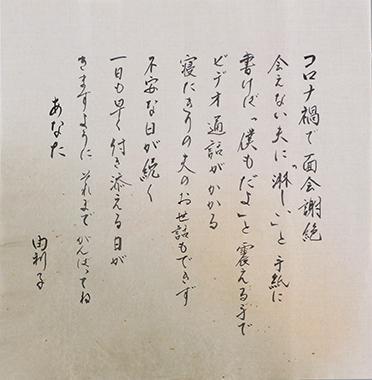 コロナ禍で面会謝絶
会えない夫に「淋しい」と手紙に
書けば「僕もだよ」と震える手で
ビデオ通話がかかる
寝たきりの夫のお世話もできず
不安な日が続く
一日も早く付き添える日が
きますように それまでがんばってね
あなた
由利子